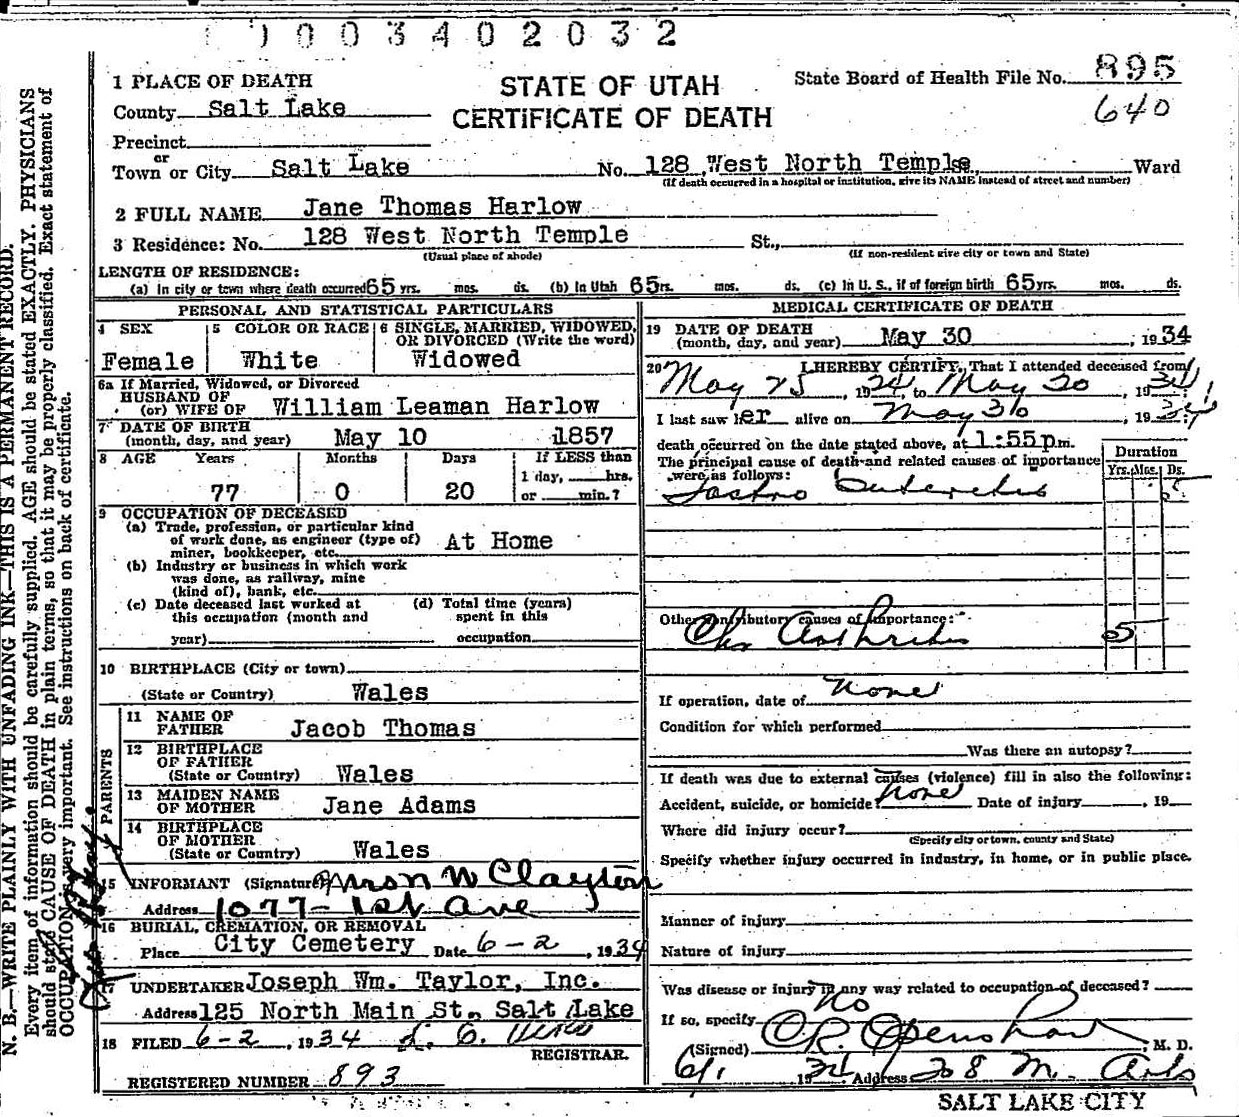 1003402032
1 PLACE OF DEATH
STATE OF UTAH
CERTIFICATE OF DEATH
State Board of Health File No. 895
640
County Salt Lake
Precinct
or
Town or City Salt Lake No. 128 West North Temple, Ward
(If death occurred in a hospital or institution, give its NAME instead of street and number)
2 FULL NAME Jane Thomas Harlow
3 Residence: No. 128 West North Temple St.,
(Usual place of abode) (If non-resident give city or town and State)
LENGTH OF RESIDENCE:
(a) In city or town where death occurred 65 yrs. mos. ds. (b) In Utah 65rs. mos. ds. (c) In U. S., if of foreign birth 65yrs. mos. ds.
PERSONAL AND STATISTICAL PARTICULARS
4 SEX
Female
5 COLOR OR RACE
White
6 SINGLE, MARRIED, WIDOWED,
OR DIVORCED (Write the word)
Widowed
6a If Married, Widowed, or Divorced
HUSBAND OF
(or) WIFE OF William Leaman Harlow
7 DATE OF BIRTH
(month, day, and year) May 10 1857
8 AGE Years Months Days If LESS than
1 day, hrs.
77 0 20 or min.?
9 OCCUPATION OF DECEASED
(a) Trade, profession, or particular kind
of work done, as engineer (type of)
miner, bookkeeper, etc. At Home
(b) Industry or business in which work
was done, as railway, mine
(kind of), bank, etc.
(c) Date deceased last worked at
this occupation (month and
year)
(d) Total time (years)
spent in this
occupation
10 BIRTHPLACE (City or town)
(State or Country) Wales
PARENTS
11 NAME OF
FATHER Jacob Thomas
12 BIRTHPLACE
OF FATHER
(State or Country) Wales
13 MAIDEN NAME
OF MOTHER Jane Adams
14 BIRTHPLACE
OF MOTHER
(State or Country) Wales
15 INFORMANT (Signature) Mrs N W Clayton
Address 1077-1st Ave
16 BURIAL, CREMATION, OR REMOVAL
Place City Cemetery Date 6-2, 1934
17 UNDERTAKER Joseph Wm. Taylor, Inc.
Address 125 North Main St. Salt Lake
18 FILED 6-2, 1934
REGISTRAR.
REGISTERED NUMBER 893
MEDICAL CERTIFICATE OF DEATH
19 DATE OF DEATH
(month, day, and year) May 30, 1934
20 I HEREBY CERTIFY, That I attended deceased from
May 25, 1934, to May 30, 1934
I last saw her alive on May 30, 1934
death occurred on the date stated above, at 1:55pm.
The principal cause of death and related causes of importance
were as follows:
Gastro Enteritis
Duration
Yrs. Mos. Ds.
5
Other contributory causes of importance:
Chr Arthritis 5
If operation, date of None
Condition for which performed
Was there an autopsy?
If death was due to external causes (violence) fill in also the following:
Accident, suicide, or homicide? None Date of injury, 19
Where did injury occur?
(Specify city or town, county and State)
Specify whether injury occurred in industry, in home, or in public place.
Manner of injury
Nature of injury
Was disease or injury in any way related to occupation of deceased?
If so, specify No
(Signed) C R Openshaw, M. D.
6/1 1934 Address 208 M. Arts
SALT LAKE CITY
N. B.—WRITE PLAINLY WITH UNFADING INK—THIS IS A PERMANENT RECORD.
Every item of information should be carefully supplied. AGE should be stated EXACTLY. PHYSICIANS
should state CAUSE OF DEATH in plain terms, so that it may be properly classified. Exact statement of
OCCUPATION is very important. See instructions on back of certificate.